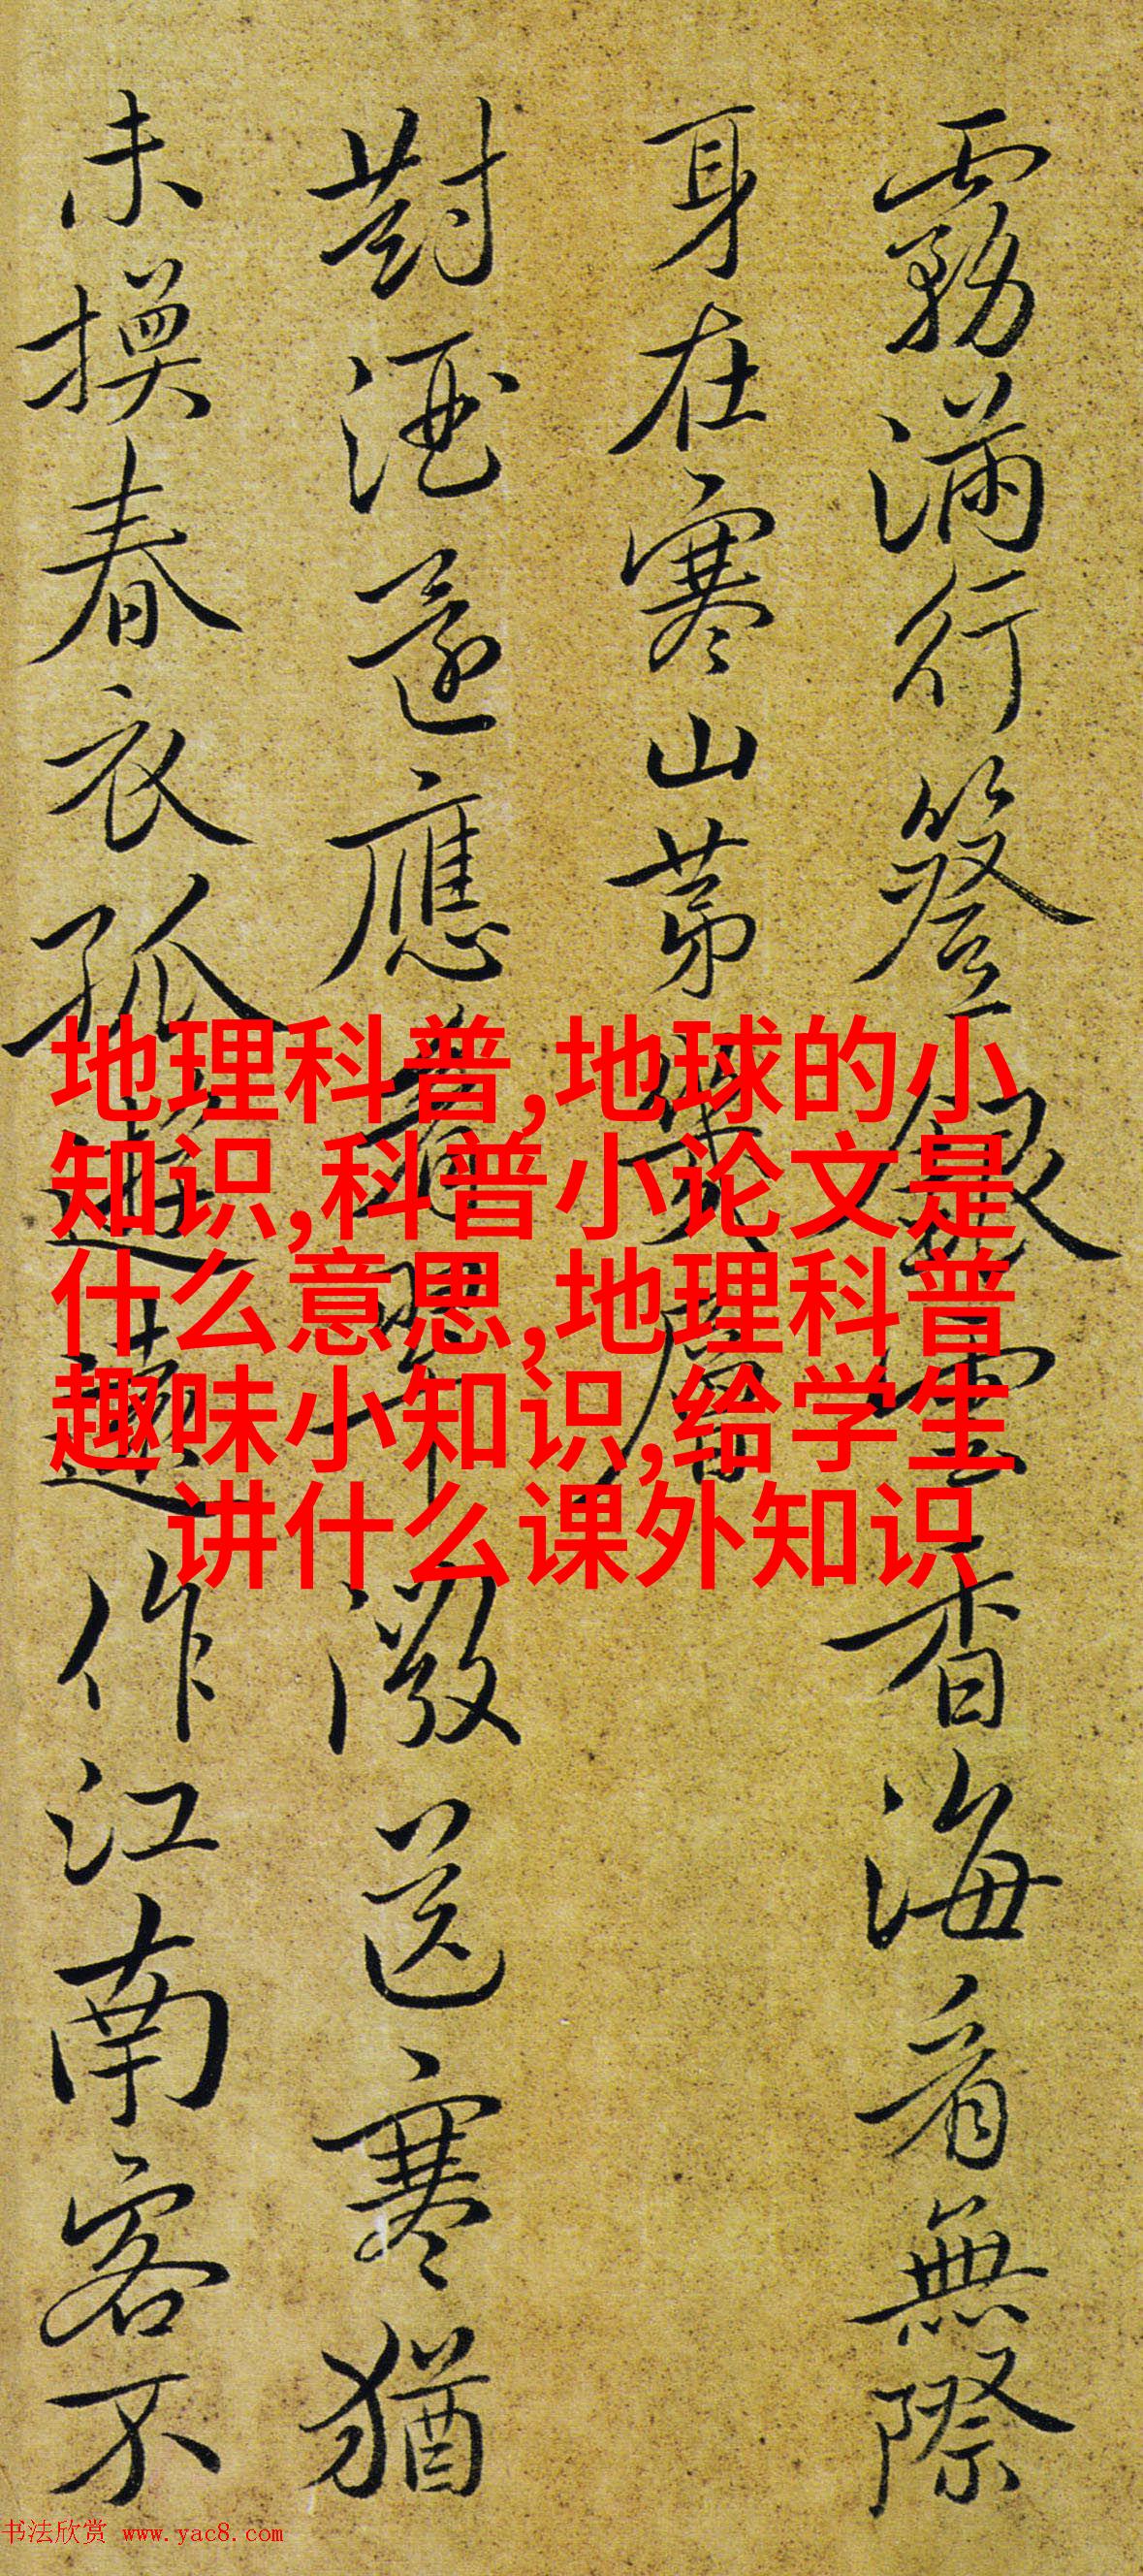 霧滿行簦銀雲香海看無際
身在寒山第幾層
對酒還應著送寒猶
未換春衣孤遊遠作江南客不
地理科普,地球的小
知识,科普小论文是
什么意思,地理科普
趣味小知识,给学生
讲什么课外知识
书法欣赏 www.yac8.com